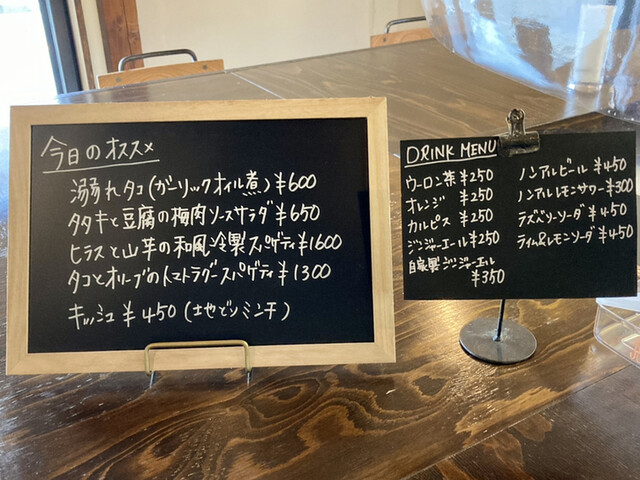 今日のオススメ
溺れタコ(ガーリックオイル煮)¥600
タタキと豆腐の梅肉ソースサラダ ¥650
ヒラスと山芋の和風冷製スパゲティ¥1600
タコとオリーブのトマトラグースパゲティ¥1300
キッシュ ¥450 (ミンチ)
DRINK MENU
ウーロン茶¥250
オレンジ ¥250
カルピス ¥250
ジンジャーエール¥250
自家製ジンジャーエール
¥350
ノンアルビール ¥450
ノンアルレモンサワー¥300
ラズベリーソーダ ¥450
ライム&レモンソーダ ¥450